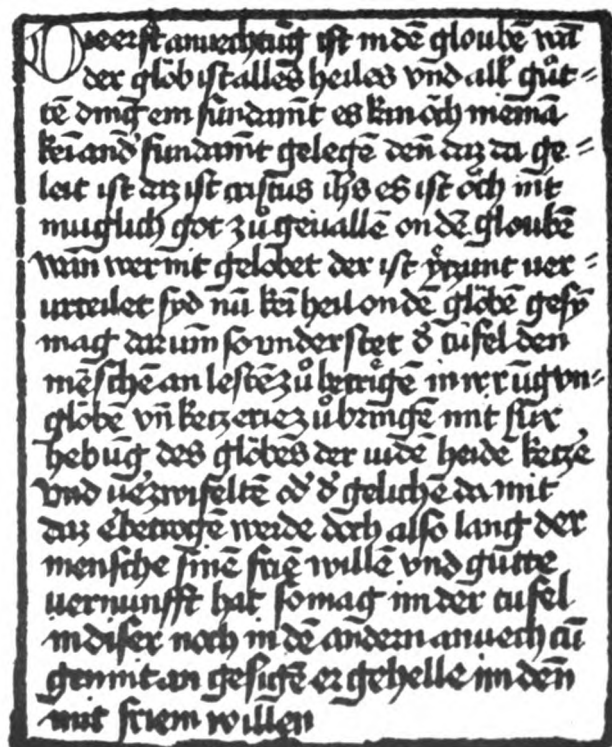 Die erst anuechtūg ist in dē gloubē wā
der glōb ist allēs heiles vnd all' gůt=
tē dinḡ ein fūndam̄t es kin ōch niemā
kei and' fundam̄t gelegē den̄ daz da ge=
leit ist daz ist cristus ih̄s es ist ōch nit
muglich got zů geuallē on dē gloubē
wan̄ wer nit gelobet der ist yͤtzunt uer=
urteilet syd nū kei heil on dē glōbē gesȳ
mag dar um̄ so vnderstet d' tüfel den
mēschē an lestē zů betriͤgē in irrūg vn=
glōbē vn̄ ketzerie zů bringē mit für
hebūg des glōbēs der iudē heidē ketzē
vnd ūe'zwifeltē od' d' gelichē da mit
daz e' betrogē werde doch also lang der
mensche sinē friē willē vnd gūtte
uernunfft hat so mag im der tufel
in diser noch in dē an̄dern anuechtū
gen nit an gesigē er gehelle im den̄
mit friem willen